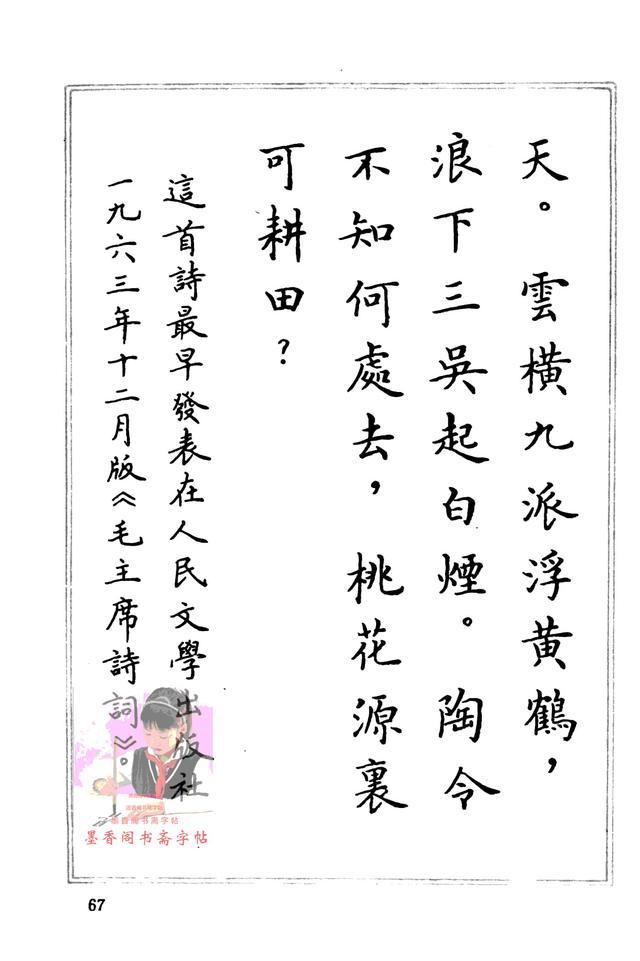 天。雲橫九派浮黄鶴，
浪下三吳起白煙。陶令
不知何處去，桃花源裏
可耕田？
這首詩最早發表在人民文學出版社
一九六三年十二月版《毛主席詩詞》。
墨香阁书斋字帖
墨香阁书斋字帖
67